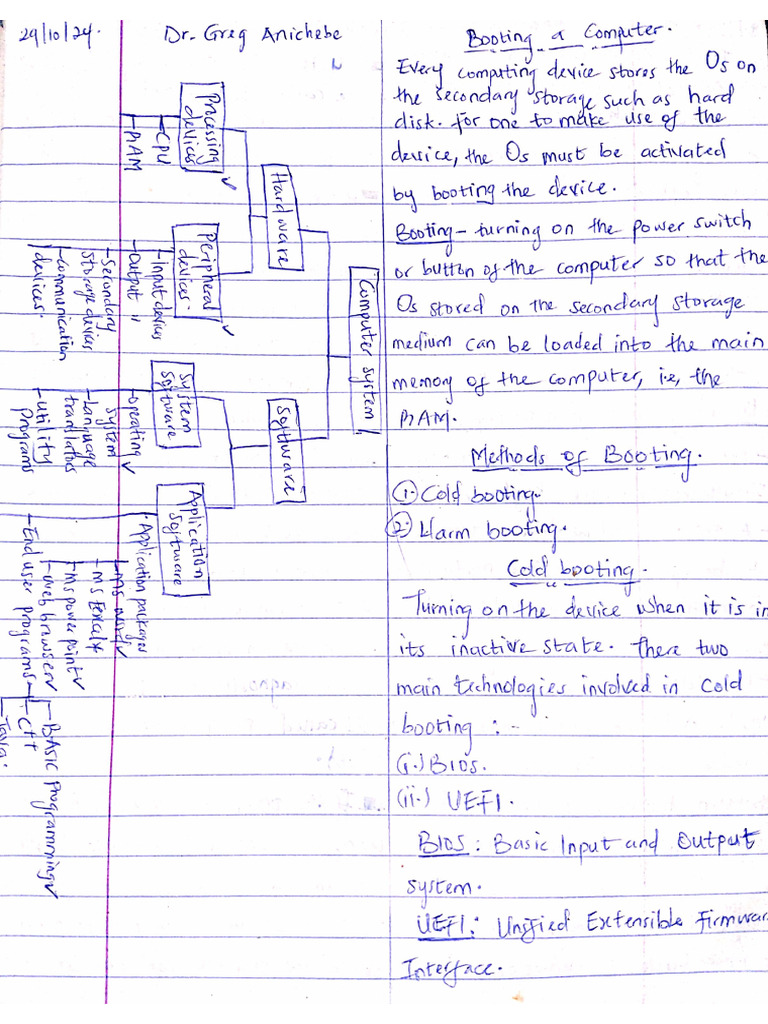 29/10/24.
Dr. Greg Anichebe
Computer system
Hardware
Processing
devices
-CPU
-RAM
Peripheral
devices.
-Input devices
-Output "
-Secondary
storage devices
-Communication
devices.
Software
System
Software
-operating
system
-Language
translators
-Utility
Programs
Application
Software
-Application packages
-MS word
-MS Excel
-MS powerpoint
-web browser
-End user programs
-BASIC Programming
-C++
-Java.
Booting a Computer.
Every computing device stores the Os on
the secondary storage such as hard
disk. For one to make use of the
device, the Os must be activated
by booting the device.
Booting - turning on the power switch
or button of the computer so that the
Os stored on the secondary storage
medium can be loaded into the main
memory of the computer, i.e, the
RAM.
Methods of Booting.
1. Cold booting.
2. Warm booting.
Cold booting.
Turning on the device when it is in
its inactive state. There two
main technologies involved in cold
booting : -
(i.) BIOS.
(ii.) UEFI.
BIOS : Basic Input and Output
system.
UEFI: Unified Extensible Firmwar
Interface.